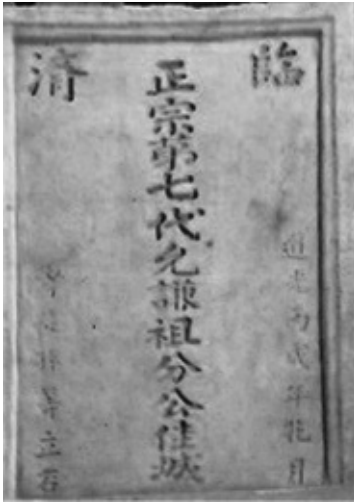 臨清
道光丙戌年花月
正宗第七代允謙祖分公佳城
等立石